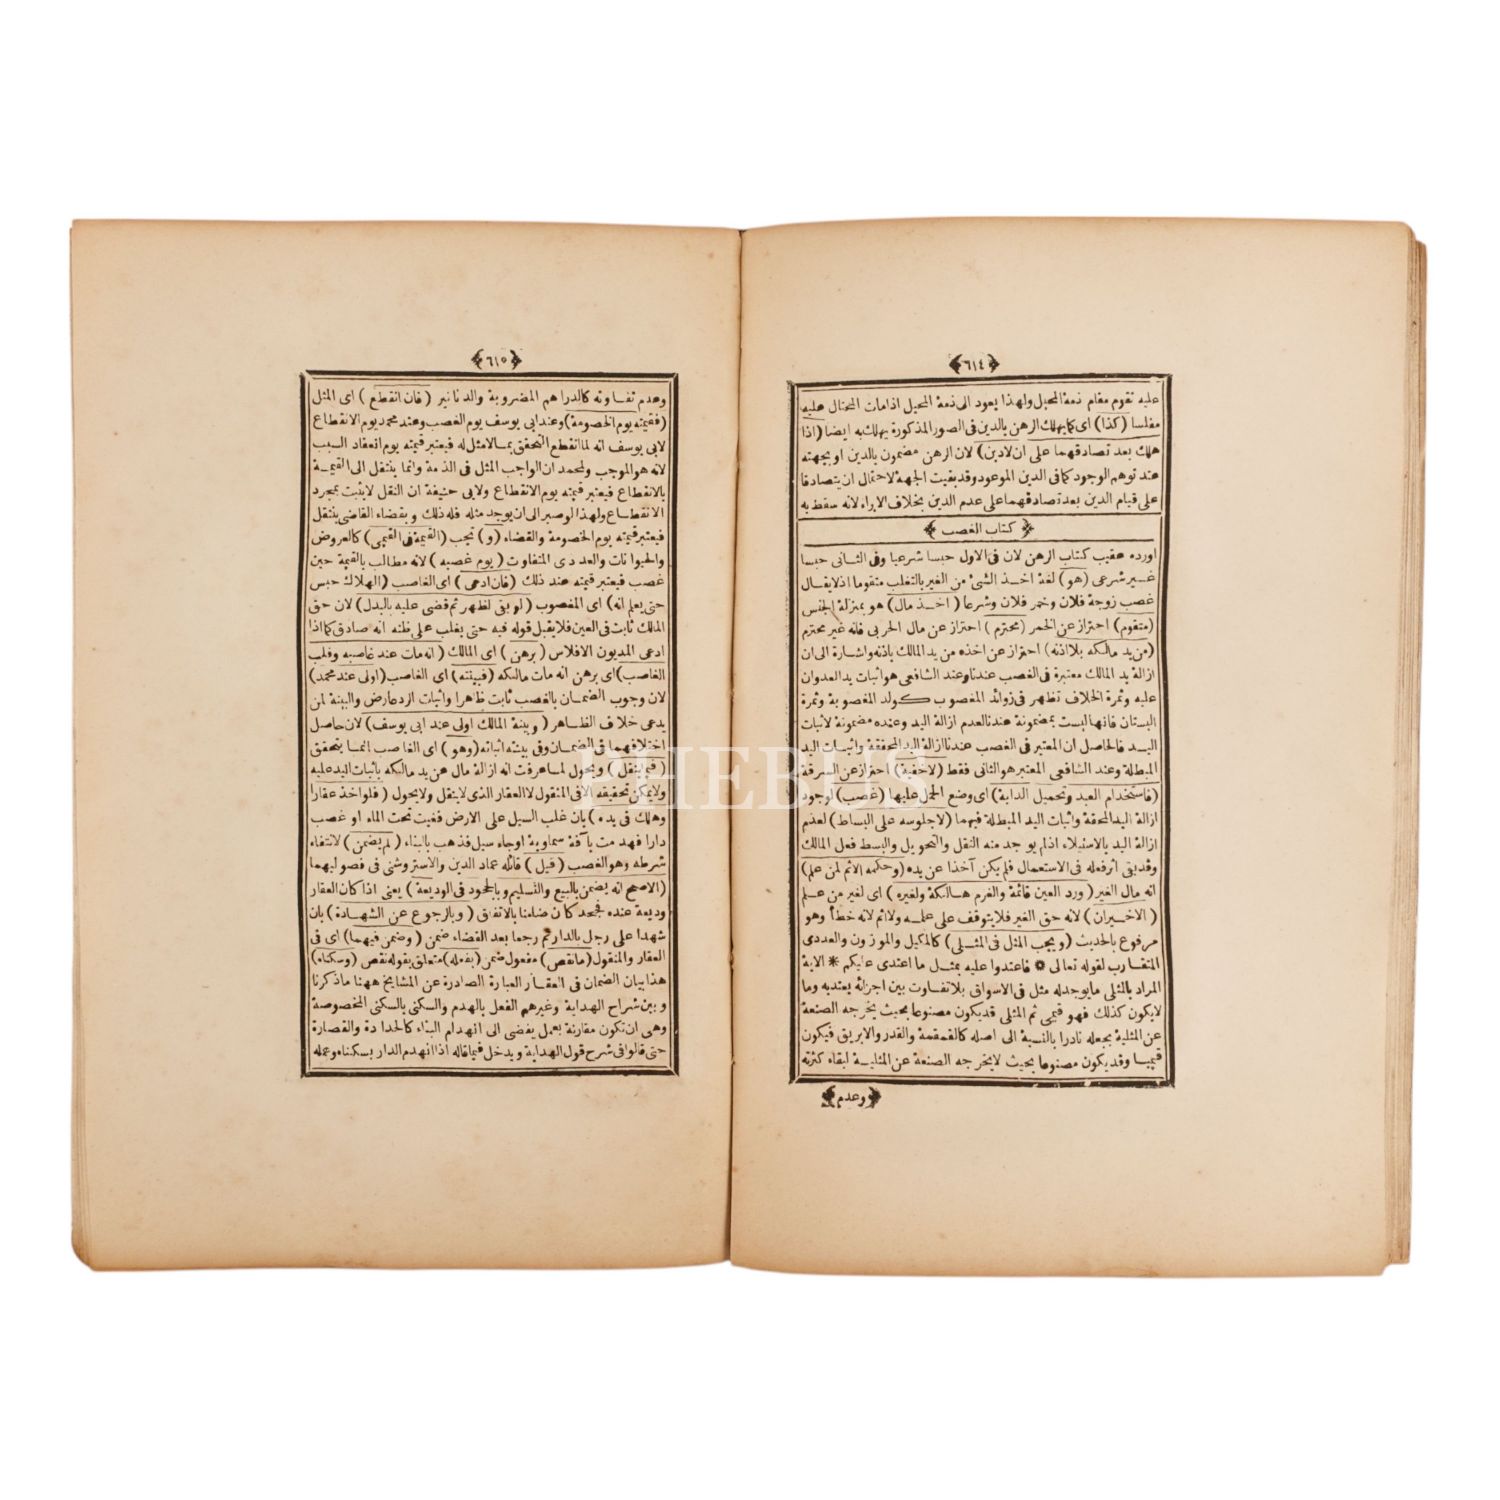 ﴿٦١٤﴾
عليه تقوم مقام ذمة المحيل ولهذا يعود الى ذمة المحيل اذا مات المحتال عليه
مفلسا (كذا) اى كما يهلك الرهن بالدين فى الصور المذكورة يهلك به ايضا (اذا
هلك بعد تصادقهما على ان لادين) لان الرهن مضمون بالدين او بجهته
عند توهم الوجود كما فى الدين الموعود وقد بقيت الجهة لاحتمال ان يتصادقا
على قيام الدين بعد تصادقهما على عدم الدين بخلاف الابراء لانه سقط به
﴿كتاب الغصب﴾
اورده عقيب كتاب الرهن لان فى الاول حبسا شرعيا وفى الثانى حبسا
غير شرعى (هو) لغة اخذ الشئ من الغير بالتغلب متقوما اولا يقال
غصب زوجة فلان وخمر فلان وشرعا (اخذ مال) هو بمنزلة الجنس
(متقوم) احتراز عن الخمر (محترم) احتراز عن مال الحربى فانه غير محترم
(من يد مالكه بلا اذنه) احتراز عن اخذه من يد المالك باذنه واشارة الى ان
ازالة يد المالك معتبرة فى الغصب عندنا وعند الشافعى هو اثبات يد العدوان
عليه وثمرة الخلاف تظهر فى زوائد المغصوب كولد المغصوبة وثمرة
البستان فانها ليست بمضمونة عندنا لعدم ازالة اليد وعنده مضمونة لاثبات
اليد فالحاصل ان المعتبر فى الغصب عندنا ازالة اليد المحققة واثبات اليد
المبطلة وعند الشافعى المعتبر هو الثانى فقط (لاخفية) احتراز عن السرقة
(فاستخدام العبد وتحميل الدابة) اى وضع الحمل عليها (غصب) لوجود
ازالة اليد المحقة واثبات اليد المبطلة فيهما (لا جلوسه على البساط) لعدم
ازالة اليد بالاستيلاء اذ لم يوجد منه النقل والتحويل والبسط فعل المالك
وقد بقى اثر فعله فى الاستعمال فلم يكن آخذا عن يده (وحكمه الاثم لمن علم)
انه مال الغير (ورد العين قائمة والغرم هالكة ولغيره) اى لغير من علم
(الاخيران) لانه حق الغير فلا يتوقف على علمه ولا اثم لانه خطأ وهو
مرفوع بالحديث (ويجب المثل فى المثلى) كالمكيل والموزون والعددى
المتقارب لقوله تعالى * فاعتدوا عليه بمثل ما اعتدى عليكم * الاية
المراد بالمثلى ما يوجد له مثل فى الاسواق بلا تفاوت بين اجزائه يعتد به وما
لا يكون كذلك فهو قيمى ثم المثلى قد يكون مصنوعا بحيث يخرجه الصنعة
عن المثلية بجعله نادرا بالنسبة الى اصله كالقمقمة والقدر والابريق فيكون
قيميا وقد يكون مصنوعا بحيث لا يخرجه الصنعة عن المثلية لبقاء كثرته
﴿وعدم﴾
﴿٦١٥﴾
وعدم تفاوته كالدراهم المضروبة والدنانير (فان انقطع) اى المثل
(فقيمته يوم الخصومة) وعند ابى يوسف يوم الغصب وعند محمد يوم الانقطاع
لابى يوسف انه لما انقطع التحقق بما لا مثل له فيعتبر قيمته يوم انعقاد السبب
لانه هو الموجب ولمحمد ان الواجب المثل فى الذمة وانما ينتقل الى القيمة
بالانقطاع فيعتبر قيمته يوم الانقطاع ولابى حنيفة ان النقل لا يثبت بمجرد
الانقطاع ولهذا لو صبر الى ان يوجد مثله فله ذلك وبقضاء القاضى ينتقل
فيعتبر قيمته يوم الخصومة والقضاء (و) تجب (القيمة فى القيمى) كالعروض
والحيوانات والعددى المتفاوت (يوم غصبه) لانه مطالب بالقيمة حين
غصب فيعتبر قيمته عند ذلك (فان ادعى) اى الغاصب (الهلاك حبس
حتى يعلم انه) اى المغصوب (لو بقى لظهر ثم قضى عليه بالبدل) لان حق
المالك ثابت فى العين فلا يقبل قوله فيه حتى يغلب على ظنه انه صادق كما اذا
ادعى المديون الافلاس (برهن) اى المالك (انه مات عند غاصبه وقلب
الغاصب) اى برهن انه مات مالكه (فبينته) اى الغاصب (اولى عند محمد)
لان وجوب الضمان بالغصب ثابت ظاهرا واثبات الرد عارض والبينة لمن
يدعى خلاف الظاهر (وبينة المالك اولى عند ابى يوسف) لان حاصل
اختلافهما فى الضمان وفى بينته اثباته (وهو) اى الغاصب انما يتحقق
(فيما ينقل) ويحول لما عرفت انه ازالة مال من يد مالكه باثبات اليد عليه
ولا يمكن تحقيقه الا فى المنقول لا العقار الذى لا ينقل ولا يحول (فلو اخذ عقارا
وهلك فى يده) بان غلب السيل على الارض فغيبت تحت الماء او غصب
دارا فهدمت بآفة سماوية او جاء سيل فذهب بالبناء (لم يضمن) لانتفاء
شرطه وهو الغصب (قيل) قائله عماد الدين والاستروشنى فى فصوليهما
(الاصح انه يضمن بالبيع والتسليم وبالجحود فى الوديعة) يعنى اذا كان العقار
وديعة عنده فجحد كان ضامنا بالاتفاق (وبالرجوع عن الشهادة) بان
شهدا على رجل بالدار ثم رجعا بعد القضاء ضمن (وضمن فيهما) اى فى
العقار والمنقول (ما نقص) مفعول ضمن (بفعله) متعلق بقوله نقص (وسكناه)
هذا بيان الضمان فى العقار العبارة الصادرة عن المشايخ ههنا ما ذكرنا
وبين شراح الهداية وغيرهم الفعل بالهدم والسكنى بالسكنى المخصوصة
وهى ان تكون مقارنة بعمل يفضى الى انهدام البناء كالحدادة والقصارة
حتى قالوا فى شرح قول الهداية ويدخل فيما قاله اذا انهدم الدار بسكناه وعمله
PHEBUS